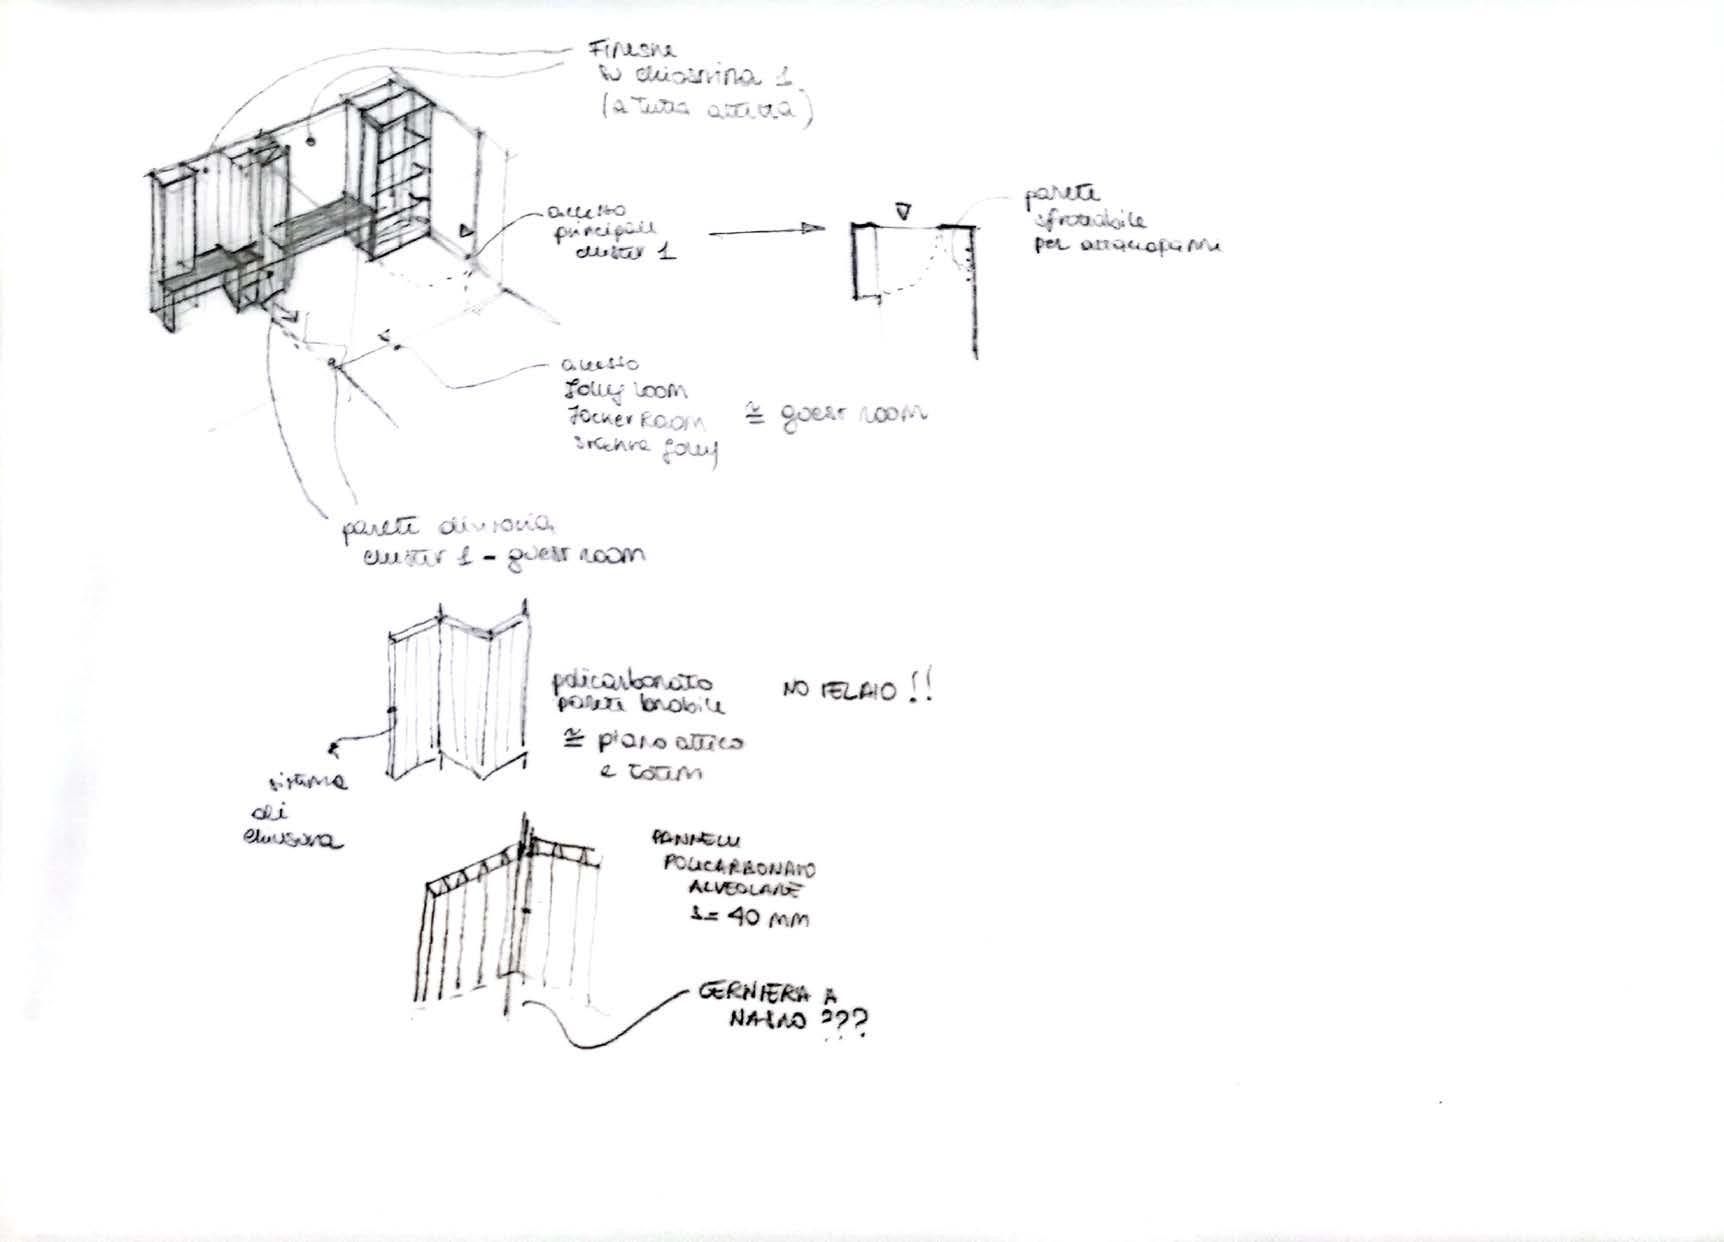 Finestre
su chiostrina 1
(a tutta altezza)
accesso
principale
cluster 1
parete
sfruttabile
per
accesso
Jolly room
Jocker Room ≅ guest room
stanza Jolly
parete divisoria
cluster 1 - guest room
policarbonato
parete
NO TELAIO !!
≅ piano attico
e totem
sistema
di
chiusura
PANNELLI
POLICARBONATO
ALVEOLARE
s = 40 mm
CERNIERA A
NASTRO ???